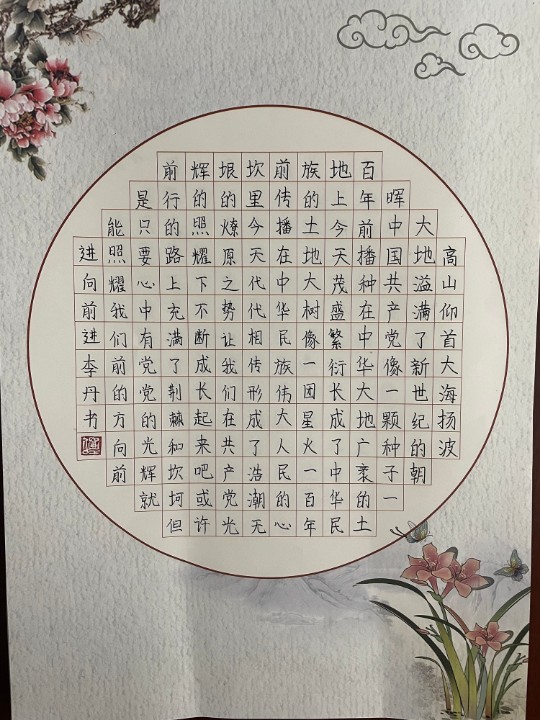 高山仰首大海扬波
大地溢满了新世纪的朝
晖中国共产党像一颗种子一
百年前播种在中华大地广袤的土
地上今天茂盛繁衍长成了中华民
族的土地大树像一团星火一百年
前传播在中华民族伟大人民的心
坎里今天代代相传形成了浩潮无
垠的燎原之势让我们在共产党光
辉的照耀下不断成长起来吧或许
前行的路上充满了荆棘和坎坷但
是只要心中有党党的光辉就
能照耀我们前的方向前
进向前进李丹书